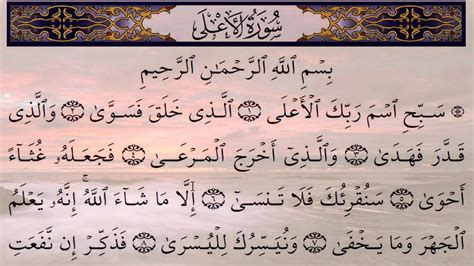 سُورَةُ ٱلْأَعْلَىٰ
بِسْمِ ٱللَّهِ ٱلرَّحْمَـٰنِ ٱلرَّحِيمِ
۞ سَبِّحِ ٱسْمَ رَبِّكَ ٱلْأَعْلَى ۝١ ٱلَّذِى خَلَقَ فَسَوَّىٰ ۝٢ وَٱلَّذِى
قَدَّرَ فَهَدَىٰ ۝٣ وَٱلَّذِىٓ أَخْرَجَ ٱلْمَرْعَىٰ ۝٤ فَجَعَلَهُۥ غُثَآءً
أَحْوَىٰ ۝٥ سَنُقْرِئُكَ فَلَا تَنسَىٰٓ ۝٦ إِلَّا مَا شَآءَ ٱللَّهُ ۚ إِنَّهُۥ يَعْلَمُ
ٱلْجَهْرَ وَمَا يَخْفَىٰ ۝٧ وَنُيَسِّرُكَ لِلْيُسْرَىٰ ۝٨ فَذَكِّرْ إِن نَّفَعَتِ